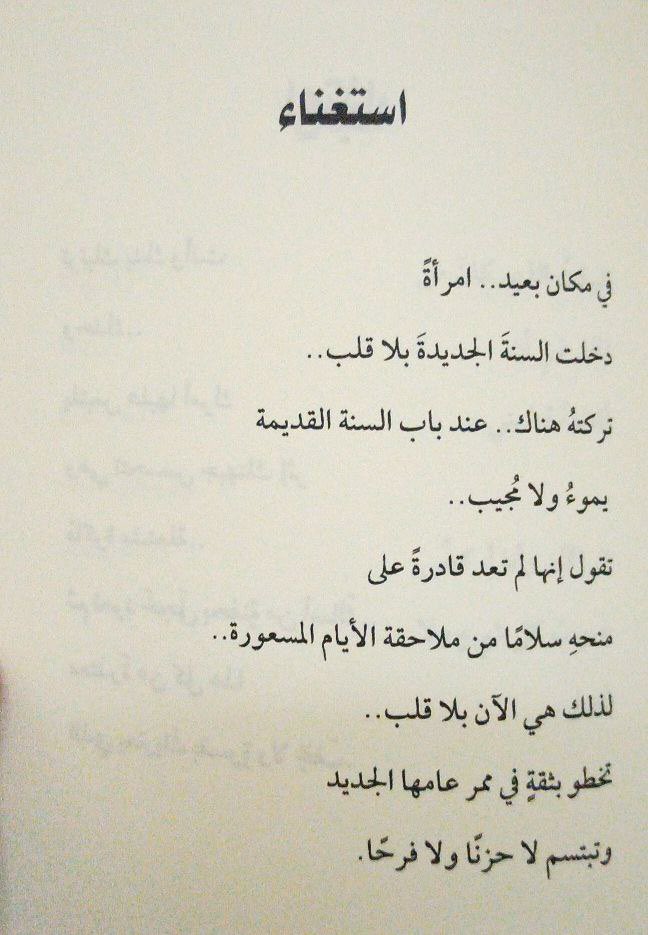 استغناء
في مكان بعيد.. امرأةً
دخلت السنةَ الجديدةَ بلا قلب..
تركتهُ هناك.. عند باب السنة القديمة
يموءُ ولا مُجيب..
تقول إنها لم تعد قادرةً على
منحهِ سلامًا من ملاحقة الأيام المسعورة..
لذلك هي الآن بلا قلب..
تخطو بثقةٍ في ممر عامها الجديد
وتبتسم لا حزنًا ولا فرحًا.